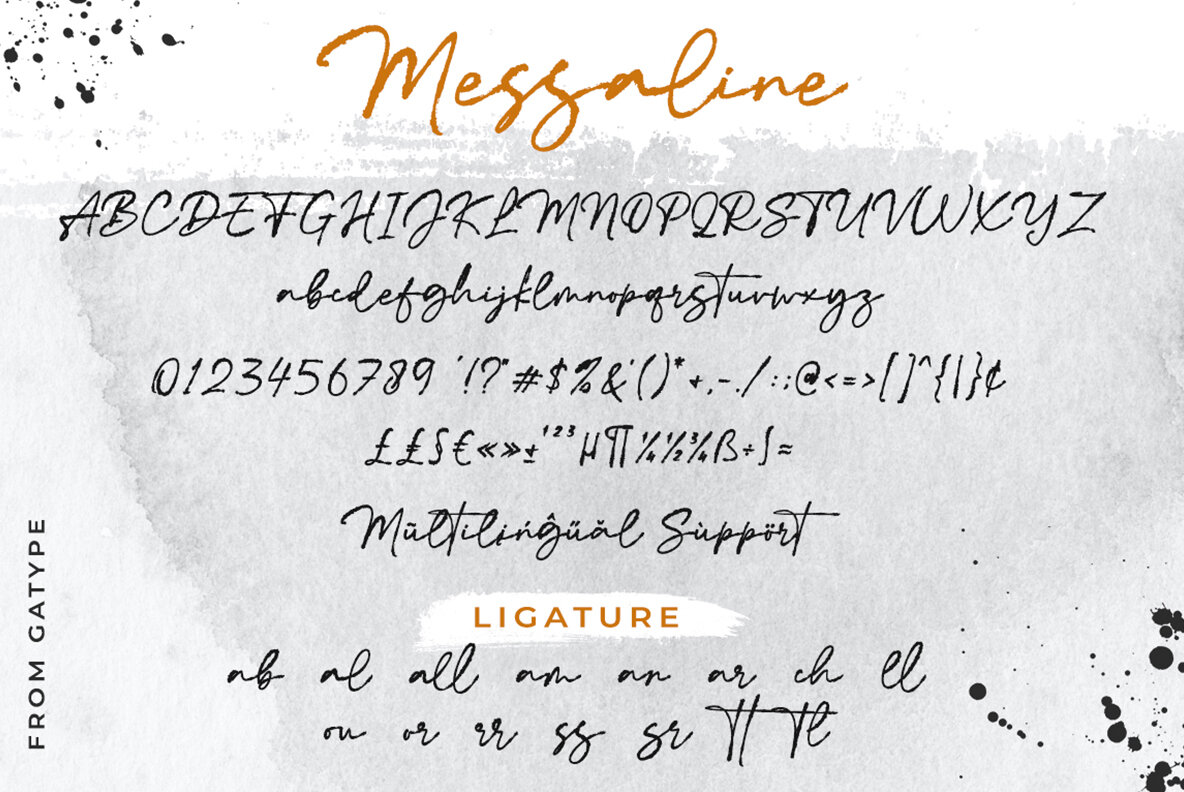 Messaline
ABCDEFGHIJKLMNOPQRSTUVWXYZ
abcdefghijklmnopqrstuvwxyz
0123456789 '!?"#$%&'()*+,-./:;@<=>[]^{|}¢
££§€«»±¹²³µ¶¼½¾ß÷∫≈
Mūltilińĝűăl Sùppört
LIGATURE
ab al all am an ar ch ll
ou or rr ss sr tt tl
FROM GATYPE